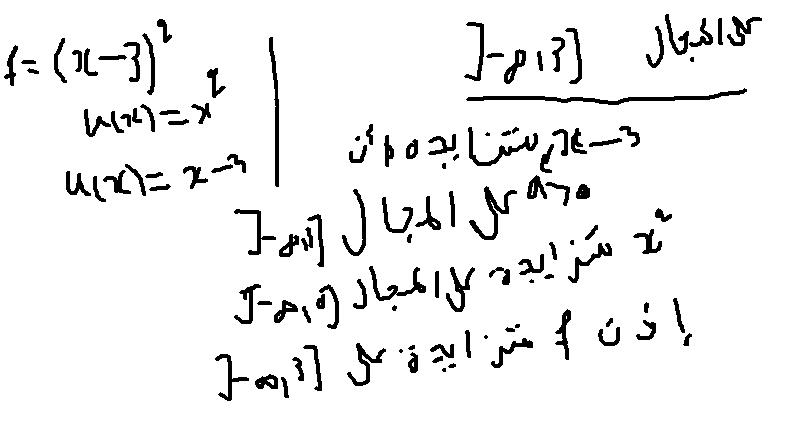 f = (x-3)²
u(x) = x²
u(x) = x-3
على المجال ]-∞,3]
x-3 متزايدة لأن
a>0 على المجال ]-∞,3]
x² متزايدة على المجال ]-∞,0]
إذن f متزايدة على ]-∞,3]